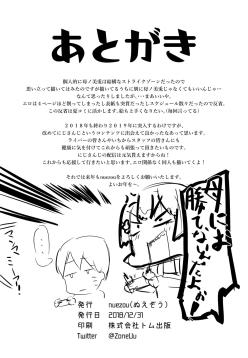 あとがき
個人的に母ノ美兎は結構なストライクゾーンだったので
思い立って描いてはみたのですが描いてるうちに別に母ノ美兎じゃなくてもいいんじゃ…
なんて思ったりしましたが、…まあいいや。
エロは6ページほど削ってしまったし表紙を突貫だしスケジュール散々だったので反省。
この反省は夏コミに活かします、始ちと早すぎるな。(毎回言ってる)
2018年も終わり2019年に突入するわけですが、
改めてにじさんじというコンテンツに出会えて良かったなあって思います。
ライバーの皆さんやいちからスタッフの皆さんにも
健康に気を付けてこれからも頑張って頂きたいものです。
にじさんじの配信は元気貰えますからね!
これからも応援して行きたいと思います、エロ関係なく同人も描いてくよ!
それでは来年もnuezouをよろしくお願いいたします。
よいお年を〜、
母には
勝てないんだよぉ!
発行 nuezou(ぬえぞう)
発行日 2018/12/31
印刷 株式会社トム出版
Twitter @ZoneUu